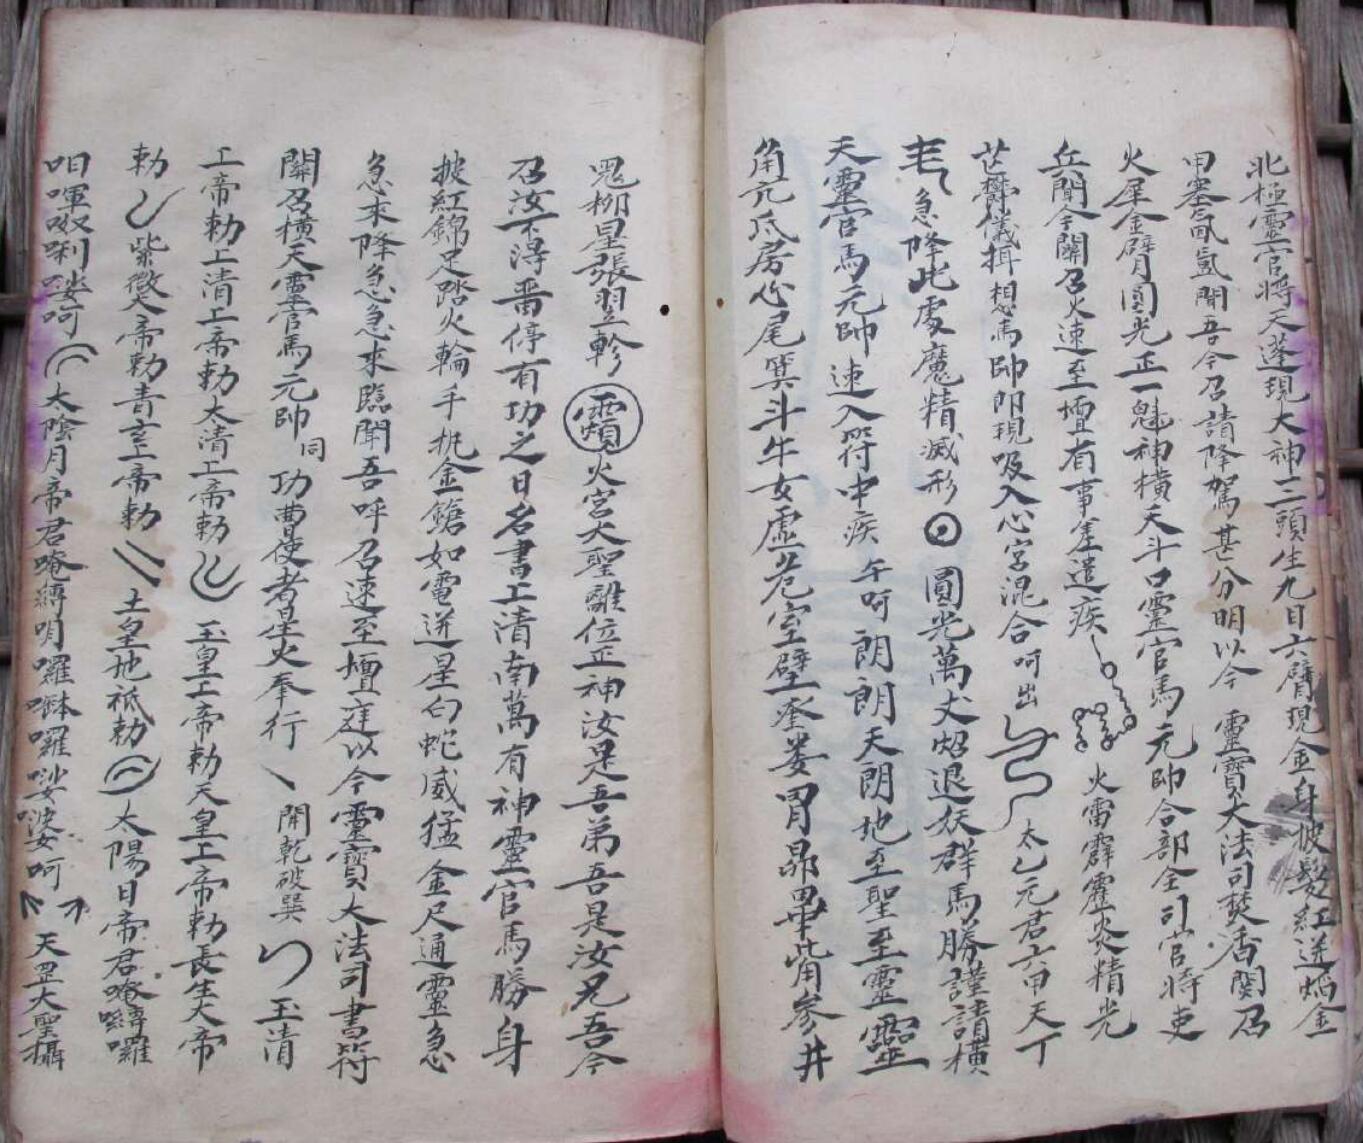 北極靈官將天蓬現大神三頭生九目六臂現金身披髮紅迸焰金
甲塞氤氳開吾今召請降駕甚分明以今 靈寶大法司焚香関召
火犀金臂月圓光正一魁神橫天斗口靈官馬元帥合部全司官將吏
兵聞今關召火速至壇有事差遣疾 火雷霹靂炎精光
芒欝儀揖想馬帥即現吸入心宮混合呵出 太乙元君六甲天丁
急降此處魔精滅形 圓光萬丈炤退妖群馬勝謹請橫
天靈官馬元帥速入符中疾 午呵 朗朗天朗地至聖至靈靈
角亢氐房心尾箕斗牛女虛危室壁奎婁胃昴畢觜參井
鬼柳星張翌軫 火宮大聖離位正神汝是吾弟吾是汝兄吾今
召汝不得畱停有功之日名書上清南萬有神靈官馬勝身
披紅錦足踏火輪手执金鎗如電迸星白蛇威猛金尺通靈急
急來降急急來臨聞吾呼召速至壇庭以今靈寶大法司書符
關召橫天靈官馬元帥 同 功曹使者星火奉行 開乾破巽 玉清
上帝勅上清上帝勅太清上帝勅 玉皇上帝勅天皇上帝勅長生大帝
勅 紫微大帝勅青玄上帝勅 土皇地祇勅 太陽日帝君唵嚩囉
呬喗呶唎娑呵 太陰月帝君唵縛明囉囉娑婆呵 天罡大聖攝